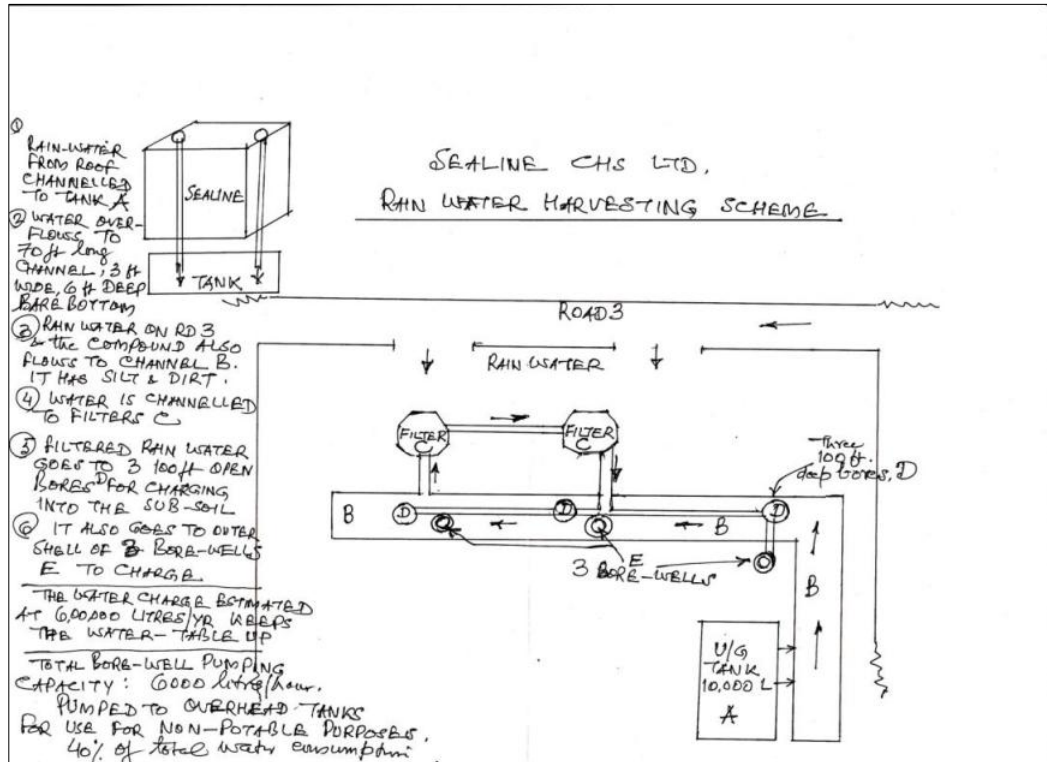 SEALINE CHS LTD.
RAIN WATER HARVESTING SCHEME
①
RAIN-WATER
FROM ROOF
CHANNELLED
TO TANK A
② WATER OVER-
FLOWS TO
70 ft long
CHANNEL, 3 ft
WIDE, 6 ft DEEP
BARE BOTTOM
③ RAIN WATER ON RD 3
& the COMPOUND ALSO
FLOWS TO CHANNEL B.
IT HAS SILT & DIRT.
④ WATER IS CHANNELLED
TO FILTERS C
⑤ FILTERED RAIN WATER
GOES TO 3 100 ft OPEN
BORES D FOR CHARGING
INTO THE SUB-SOIL
⑥ IT ALSO GOES TO OUTER
SHELL OF 3 BORE-WELLS
E TO CHARGE
THE WATER CHARGE ESTIMATED
AT 6,00,000 LITRES/YR KEEPS
THE WATER-TABLE UP
TOTAL BORE-WELL PUMPING
CAPACITY: 6000 litre/hour.
PUMPED TO OVERHEAD TANKS
FOR USE FOR NON-POTABLE PURPOSES.
40% of total water consumption
SEALINE
TANK
ROAD 3
RAIN WATER
FILTER
C
FILTER
C
Three
100 ft.
deep bores, D
B
D
D
D
B
E
3 BORE-WELLS
B
U/G
TANK
10,000 L
A